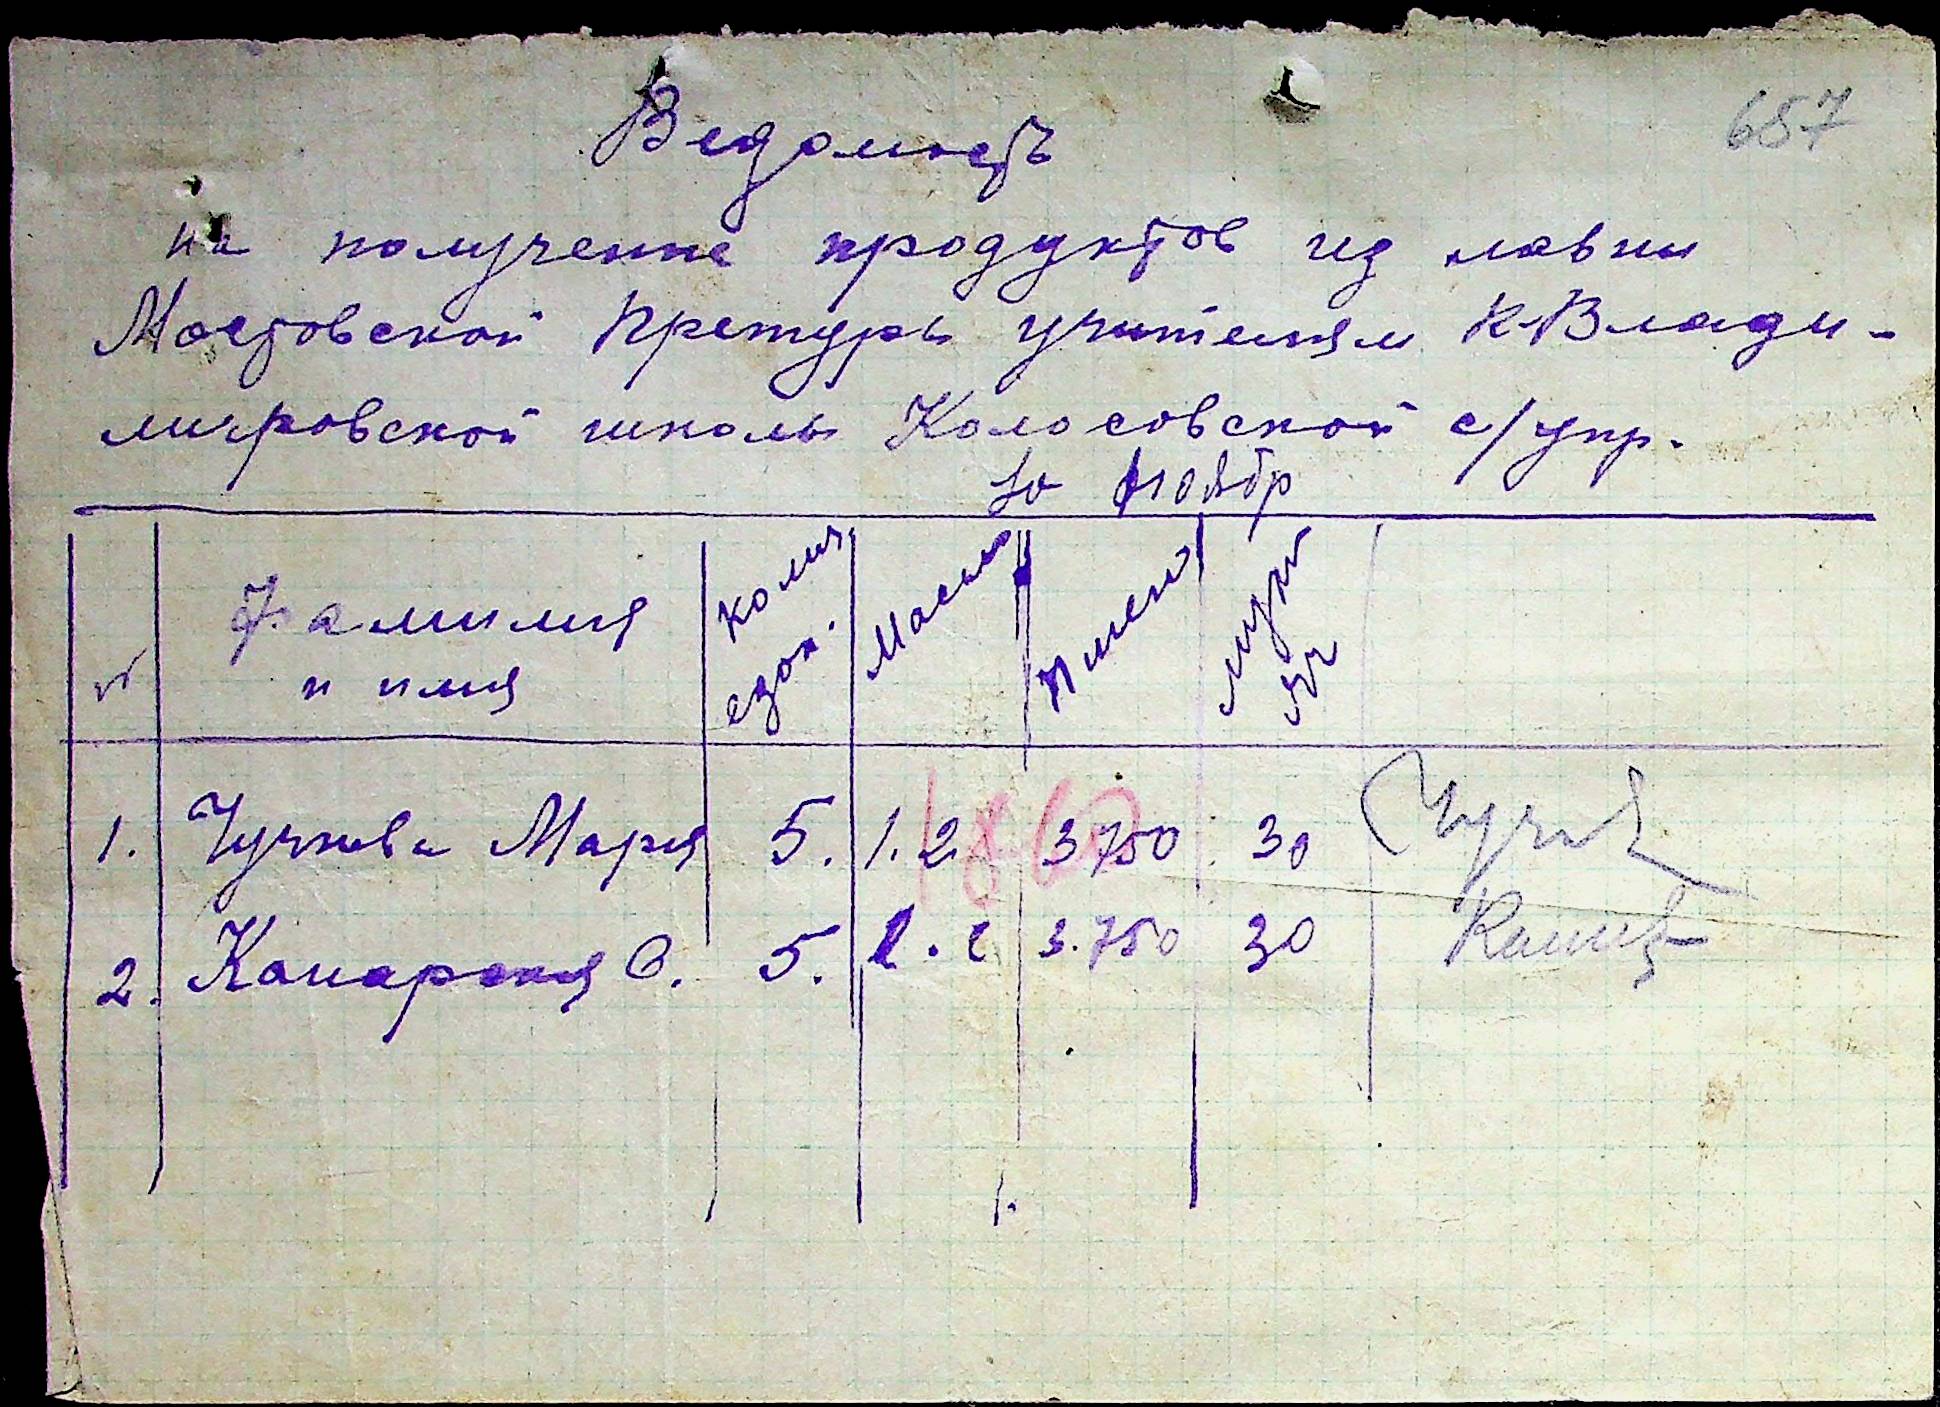 657
Ведомость
на получение продуктов из лавки
Мостовской Претуры учителям К-Влади-
мировской школы Колосовской с/упр.
за ноябр
№ Фамилия и имя Колич едок. Масло Пшено яч
1. Чучкова Мария 5. 1.2 3750 30
2. Канарская О. 5. 1.2 3.750 30